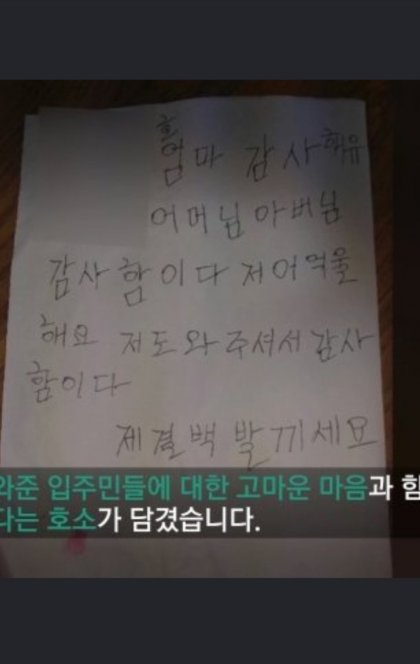 엄마 감사
어머님 아버님
감사 함이다 저 억울
해요 저 도와 주셔서 감사
함이다
제 결백 발끼세요
와준 입주민들에 대한 고마운 마음과 함
다는 호소가 담겼습니다.